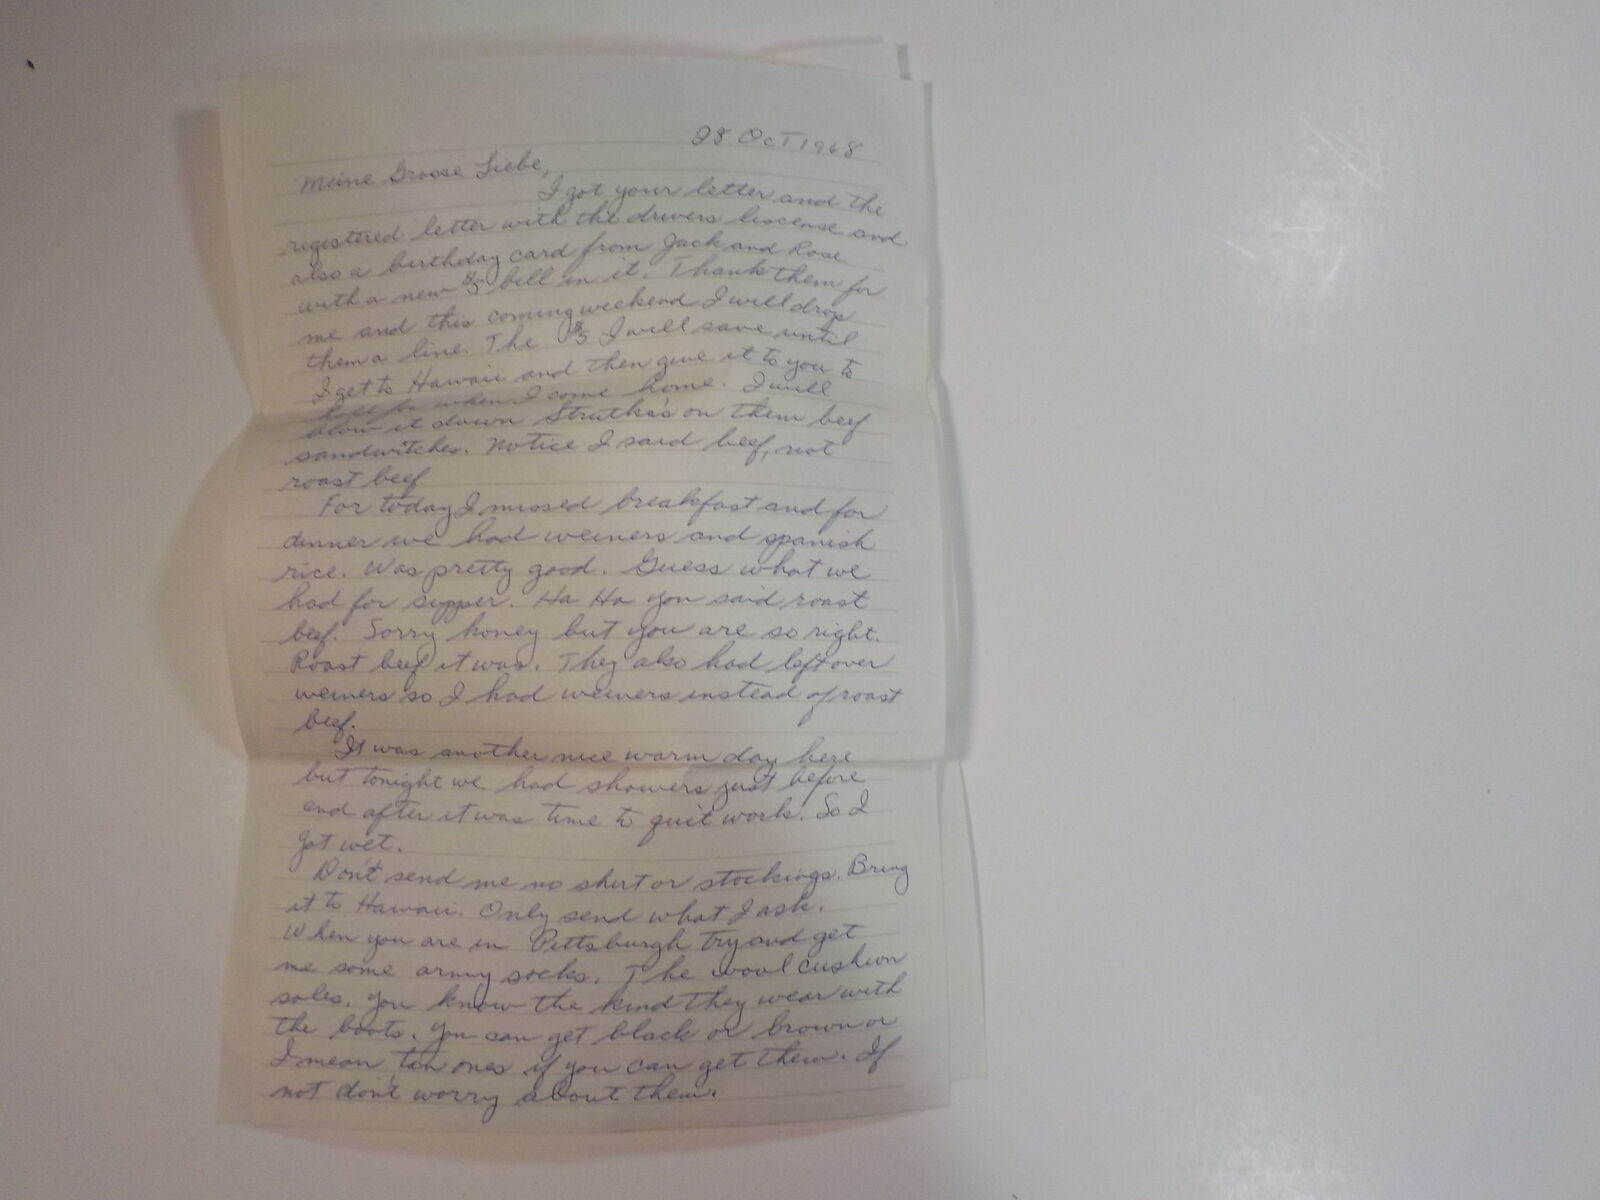 28 Oct 1968
Meine Grosse Liebe,
I got your letter and the
registered letter with the drivers liscense and
also a birthday card from Jack and Rose
with a new $5 bill in it. Thank them for
me and this coming weekend I will drop
them a line. The $5 I will save until
I get to Hawaii and then give it to you to
hold for when I come home. I will
blow it down on them beef
sandwitches. Notice I said beef, not
roast beef.
For today I missed breakfast and for
dinner we had weiners and spanish
rice. Was pretty good. Guess what we
had for supper. Ha Ha you said roast
beef. Sorry honey but you are so right.
Roast beef it was. They also had left over
weiners so I had weiners instead of roast
beef.
It was another nice warm day here
but tonight we had showers just before
and after it was time to quit work. So I
got wet.
Don't send me no shirt or stockings. Bring
it to Hawaii. Only send what I ask.
When you are in Pittsburgh try and get
me some army socks. The wool cushion
soles. You know the kind they wear with
the boots. You can get black or brown or
I mean tan ones if you can get them. If
not don't worry about them.